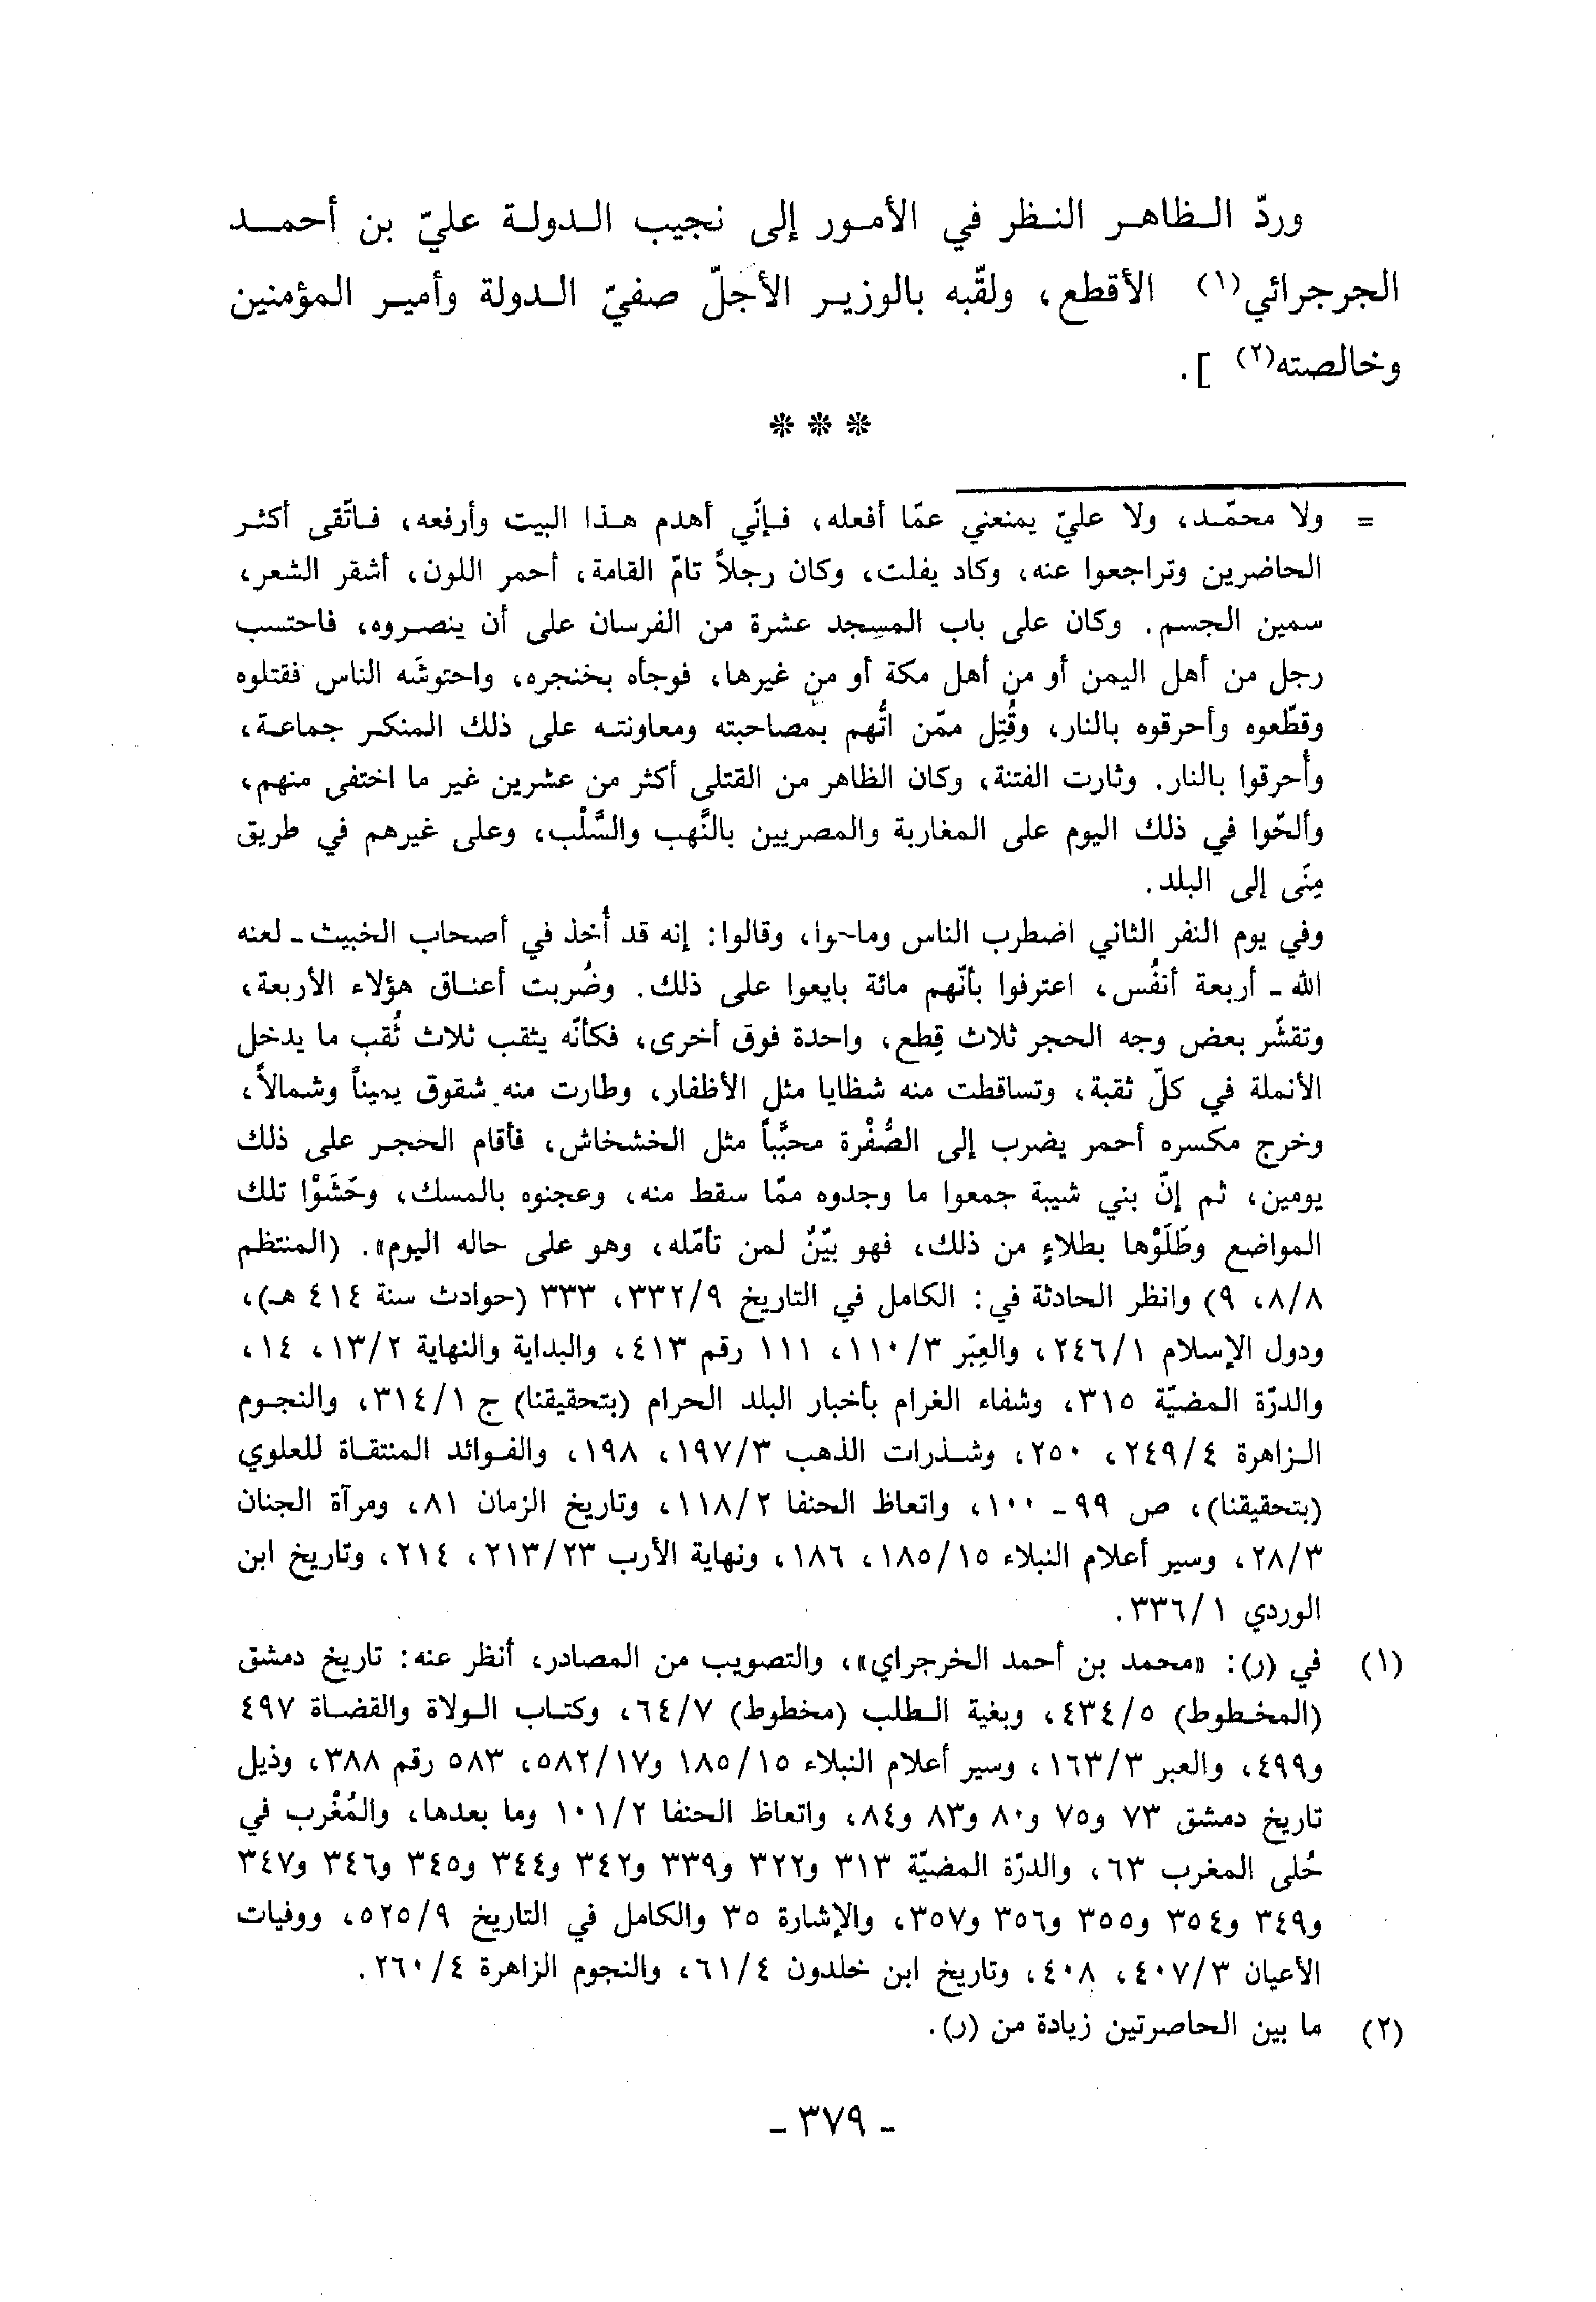 وردّ الظاهر النظر في الأمور إلى نجيب الدولة عليّ بن أحمد
الجرجرائي(١) الأقطع، ولقّبه بالوزير الأجلّ صفيّ الدولة وأمير المؤمنين
وخالصته(٢) ].
***
= ولا محمّد، ولا عليّ يمنعني عمّا أفعله، فإنّي أهدم هذا البيت وأرفعه، فاتّقى أكثر
الحاضرين وتراجعوا عنه، وكاد يفلت، وكان رجلاً تامّ القامة، أحمر اللون، أشقر الشعر،
سمين الجسم. وكان على باب المسجد عشرة من الفرسان على أن ينصروه، فاحتسب
رجل من أهل اليمن أو من أهل مكة أو من غيرها، فوجأه بخنجره، واحتوشَه الناس فقتلوه
وقطّعوه وأحرقوه بالنار، وقُتِل ممّن اتُّهم بمصاحبته ومعاونته على ذلك المنكر جماعة،
وأُحرقوا بالنار. وثارت الفتنة، وكان الظاهر من القتلى أكثر من عشرين غير ما اختفى منهم،
وألحّوا في ذلك اليوم على المغاربة والمصريين بالنَّهب والسَّلْب، وعلى غيرهم في طريق
مِنَى إلى البلد.
وفي يوم النفر الثاني اضطرب الناس وما‍وا، وقالوا: إنه قد أُخذ في أصحاب الخبيث ـ لعنه
الله ـ أربعة أنفُس، اعترفوا بأنّهم مائة بايعوا على ذلك. وضُربت أعناق هؤلاء الأربعة،
وتقشّر بعض وجه الحجر ثلاث قِطع، واحدة فوق أخرى، فكأنّه يثقب ثلاث ثُقب ما يدخل
الأنملة في كلّ ثقبة، وتساقطت منه شظايا مثل الأظفار، وطارت منه شقوق يميناً وشمالاً،
وخرج مكسره أحمر يضرب إلى الصُّفْرة محبَّباً مثل الخشخاش، فأقام الحجر على ذلك
يومين، ثم إنّ بني شيبة جمعوا ما وجدوه ممّا سقط منه، وعجنوه بالمسك، وحَشَوْا تلك
المواضع وطَلَوْها بطلاءٍ من ذلك، فهو بيّنٌ لمن تأمّله، وهو على حاله اليوم». (المنتظم
٨/٨، ٩) وانظر الحادثة في: الكامل في التاريخ ٣٣٢/٩، ٣٣٣ (حوادث سنة ٤١٤ هـ)،
ودول الإسلام ٢٤٦/١، والعِبَر ١١٠/٣، ١١١ رقم ٤١٣، والبداية والنهاية ١٣/٢، ١٤،
والدرّة المضيّة ٣١٥، وشفاء الغرام بأخبار البلد الحرام (بتحقيقنا) ج ٣١٤/١، والنجوم
الزاهرة ٢٤٩/٤، ٢٥٠، وشذرات الذهب ١٩٧/٣، ١٩٨، والفوائد المنتقاة للعلوي
(بتحقيقنا)، ص ٩٩ ـ ١٠٠، واتعاظ الحنفا ١١٨/٢، وتاريخ الزمان ٨١، ومرآة الجنان
٢٨/٣، وسير أعلام النبلاء ١٨٥/١٥، ١٨٦، ونهاية الأرب ٢١٣/٢٣، ٢١٤، وتاريخ ابن
الوردي ٣٣٦/١.
(١) في (ر): «محمد بن أحمد الخرجراي»، والتصويب من المصادر، أنظر عنه: تاريخ دمشق
(المخطوط) ٤٣٤/٥، وبغية الطلب (مخطوط) ٦٤/٧، وكتاب الولاة والقضاة ٤٩٧
و٤٩٩، والعبر ١٦٣/٣، وسير أعلام النبلاء ١٨٥/١٥ و٥٨٢/١٧، ٥٨٣ رقم ٣٨٨، وذيل
تاريخ دمشق ٧٣ و٧٥ و٨٠ و٨٣ و٨٤، واتعاظ الحنفا ١٠١/٢ وما بعدها، والمُغْرب في
حُلى المغرب ٦٣، والدرّة المضيّة ٣١٣ و٣٢٢ و٣٣٩ و٣٤٢ و٣٤٤ و٣٤٥ و٣٤٦ و٣٤٧
و٣٤٩ و٣٥٤ و٣٥٥ و٣٥٦ و٣٥٧، والإشارة ٣٥ والكامل في التاريخ ٥٢٥/٩، ووفيات
الأعيان ٤٠٧/٣، ٤٠٨، وتاريخ ابن خلدون ٦١/٤، والنجوم الزاهرة ٢٦٠/٤.
(٢) ما بين الحاصرتين زيادة من (ر).
ـ ٣٧٩ ـ